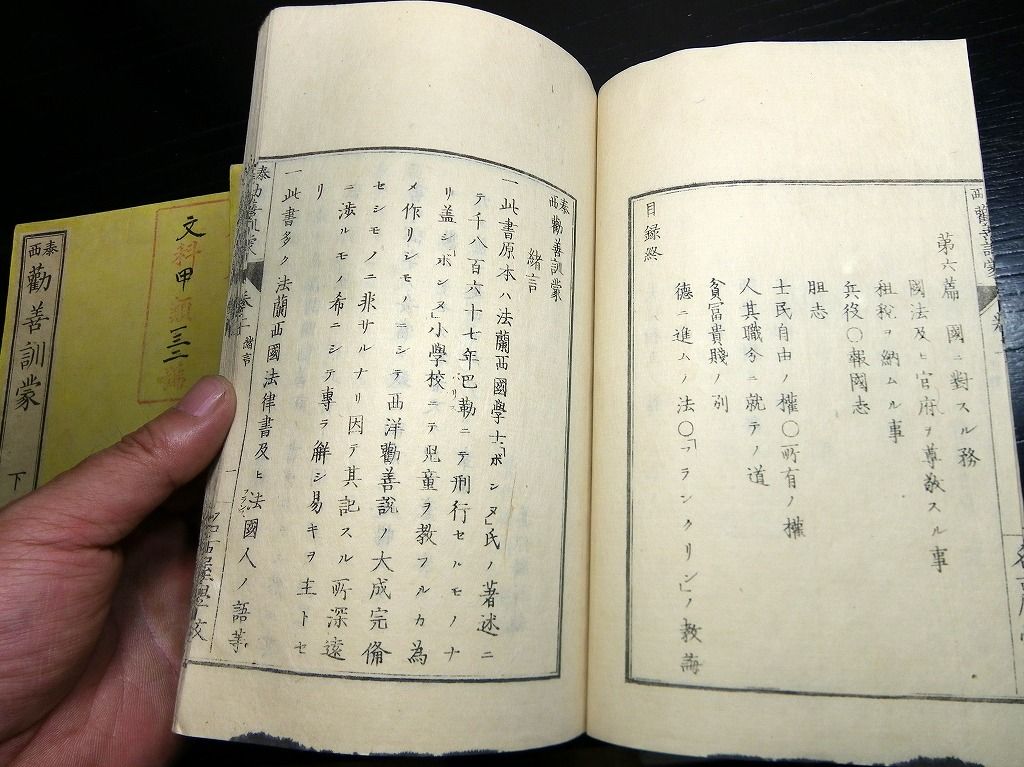 第六篇 國ニ對スル務
國法及ヒ官府ヲ尊敬スル事
租税ヲ納ムル事
兵役〇報國志
胆志
士民自由ノ權〇所有ノ權
人其職分ニ就テノ道
貧富貴賤ノ別
德ニ進ムノ法〇「フランクリン」ノ教誨
目録終
泰西勸善訓蒙
緒言
一此書原本ハ法蘭西國学士「ボンヌ」氏ノ著述ニ
テ千八百六十七年巴勒ニテ刑行セルモノナ
リ蓋シ「ボンヌ」小學校ニテ児童ヲ教フルカ為
メ作リシモノニシテ西洋勸善説ノ大成完備
セシモノニ非サルナリ因テ其記スル所深遠
ニ渉ルモノ希ニシテ專ラ解シ易キヲ主トセ
リ
一此書多ク法蘭西國法律書及ヒ法國人ノ語等
緒言
一
文科甲類一三二
泰西勸善訓蒙 下